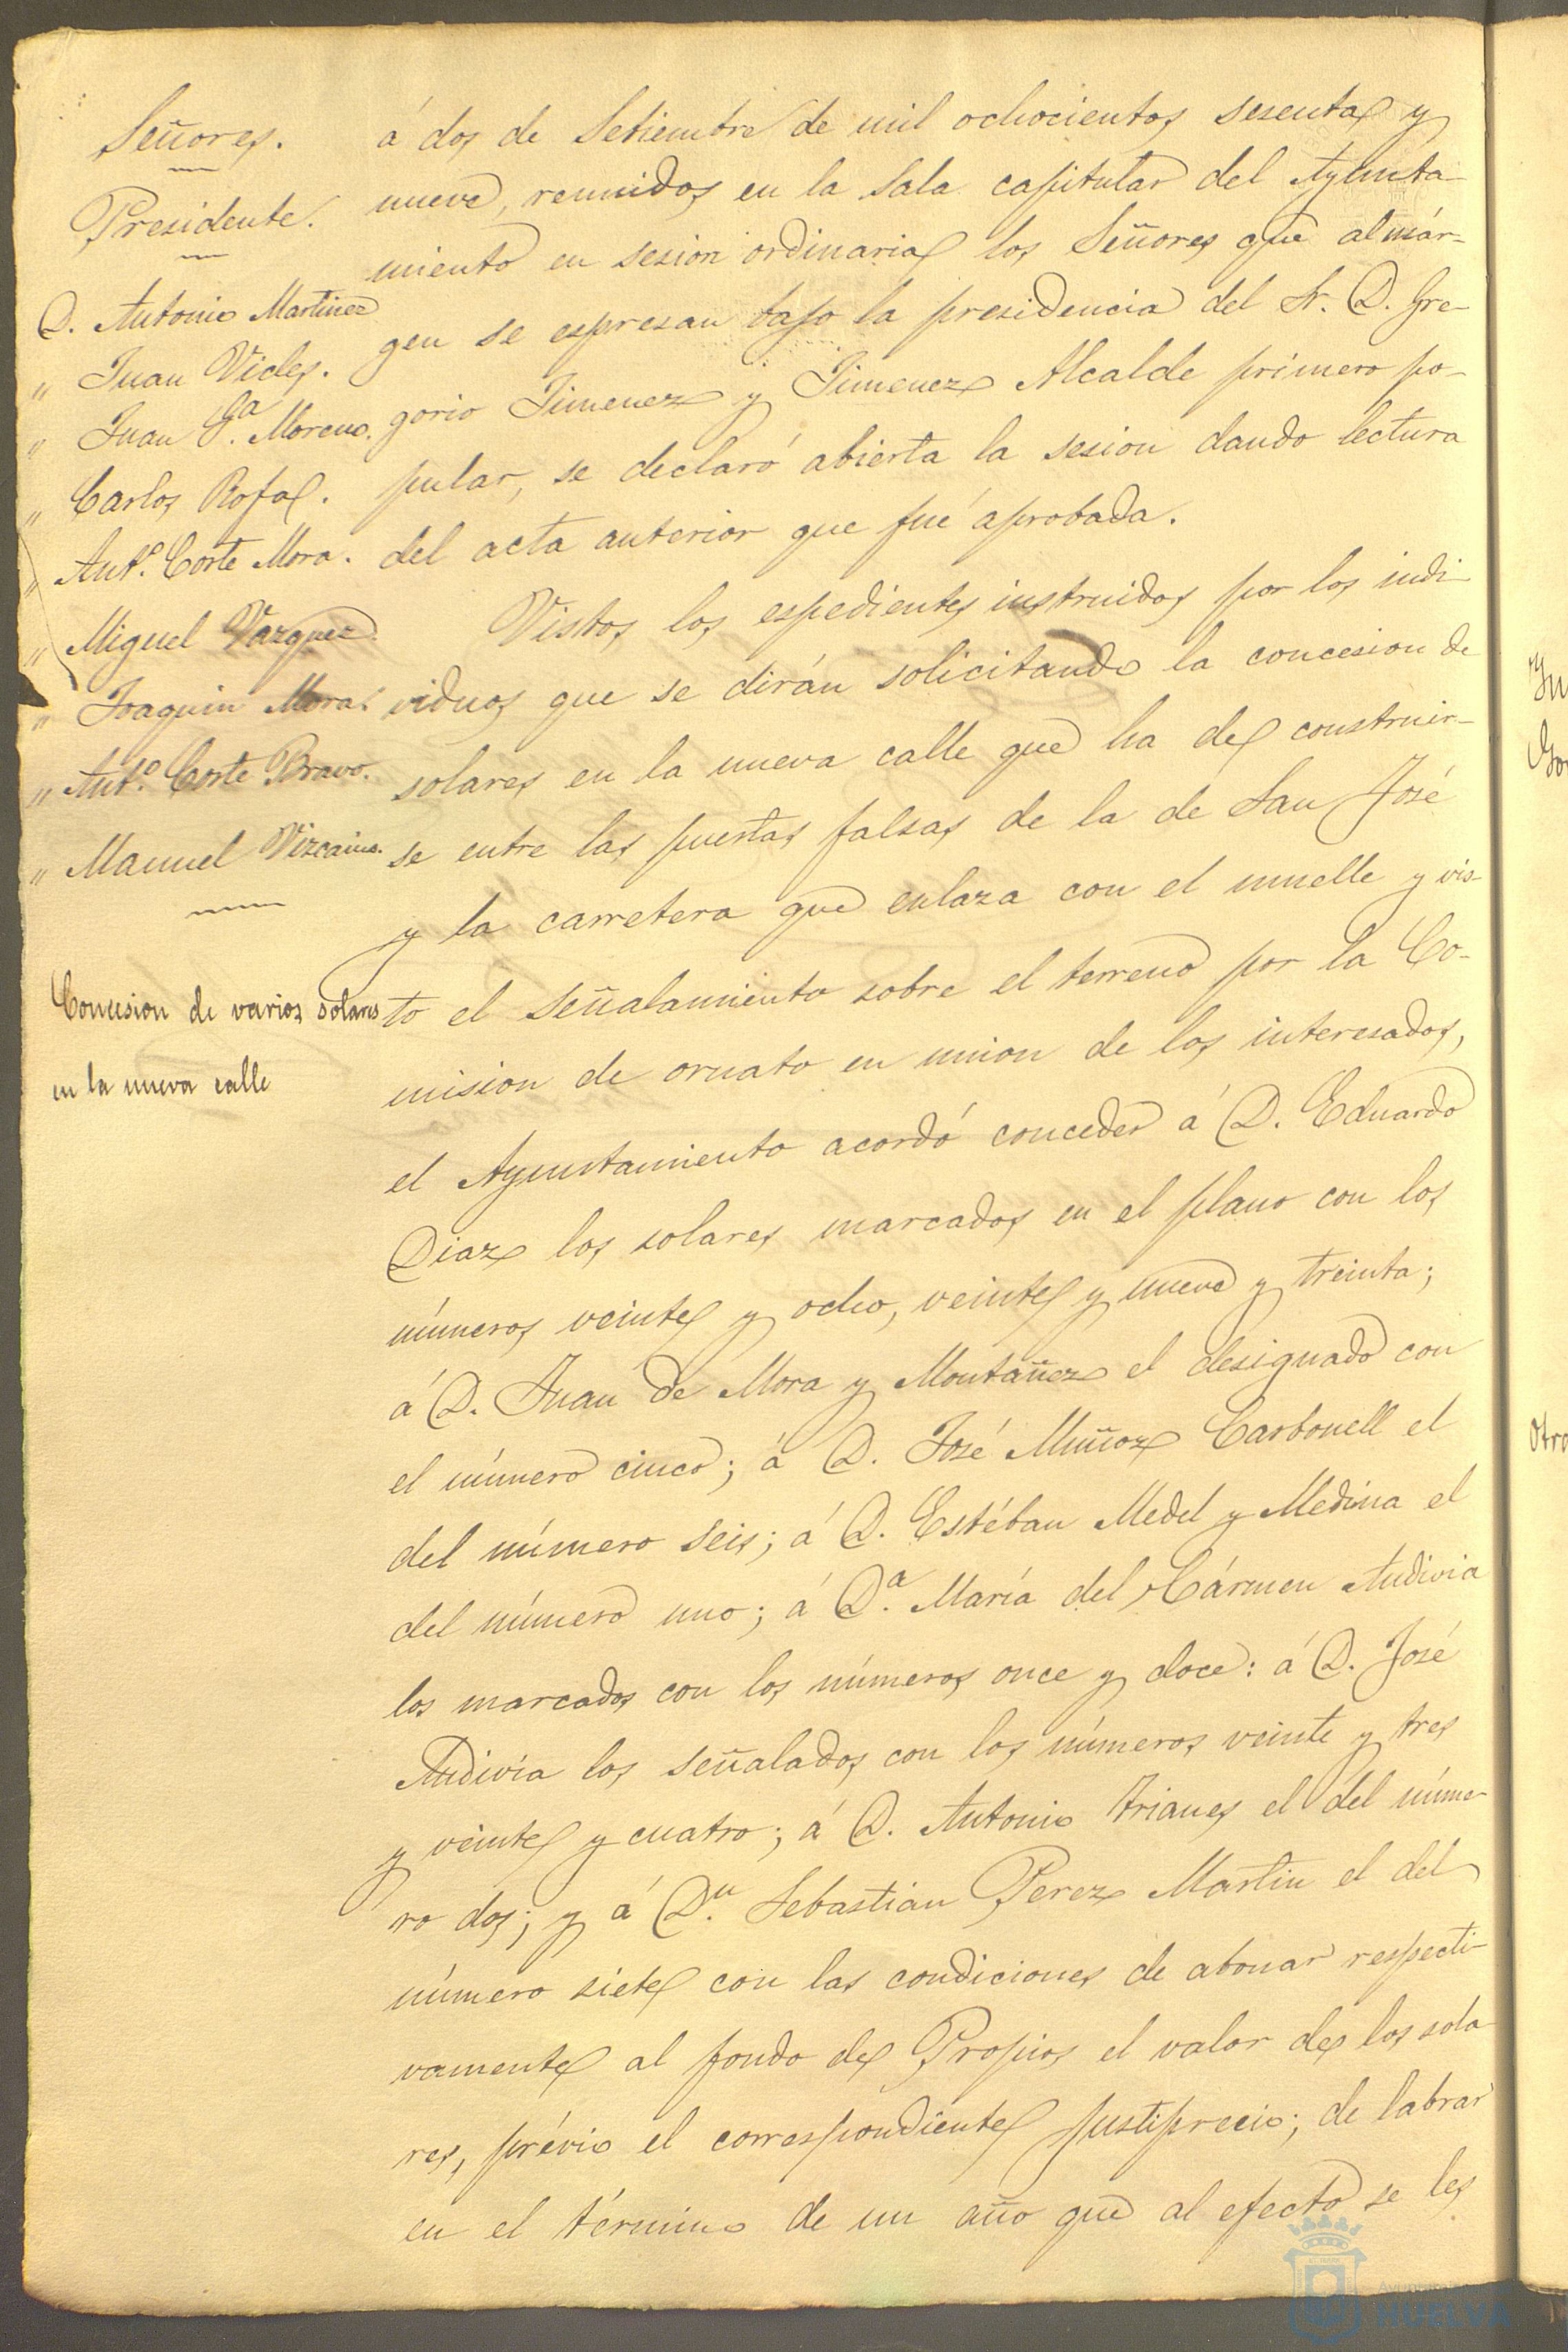 Señores.
Presidente.
D. Antonio Martinez
" Juan Vides.
" Juan Gª. Moreno.
" Carlos Rofa.
" Antº. Corte Mora.
" Miguel Vazquez
" Joaquin Mora.
" Antº. Corte Bravo.
" Manuel Vizcaino.
Concesion de varios solares
en la nueva calle
á dos de Setiembre de mil ochocientos sesenta y
nueve, reunidos en la Sala capitular del Ayunta-
miento en sesion ordinaria los Señores que al már-
gen se espresan bajo la presidencia del Sr. D. Gre-
gorio Jimenez y Jimenez Alcalde primero po-
pular, se declaró abierta la sesion dando lectura
del acta anterior que fué aprobada.
Vistos los espedientes instruidos por los indi-
viduos que se dirán solicitando la concesion de
solares en la nueva calle que ha de construir-
se entre las puertas falsas de la de San José
y la carretera que enlaza con el muelle y vis-
to el señalamiento sobre el terreno por la Co-
mision de ornato en union de los interesados,
el Ayuntamiento acordó conceder á D. Eduardo
Diaz los solares marcados en el plano con los
números veinte y ocho, veinte y nueve y treinta;
á D. Juan de Mora y Montañez el designado con
el número cinco; á D. José Muñoz Carbonell el
del número seis; á D. Estéban Medel y Medina el
del número uno; á Dª. María del Cármen Andivia
los marcados con los números once y doce: á D. José
Andivia los señalados con los números veinte y tres
y veinte y cuatro; á D. Antonio Arianes el del núme-
ro dos; y á Dn. Sebastian Perez Martin el del
número siete con las condiciones de abonar respecti-
vamente al fondo de Propios el valor de los sola-
res, prévio el correspondiente justiprecio; de labrar
en el término de un año que al efecto se les
Otro
HUELVA